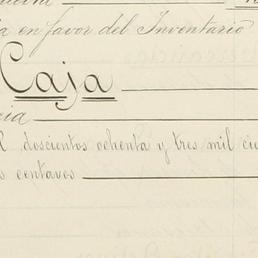 en favor del Inventario
Caja
doscientos ochenta y tres mil
centavos